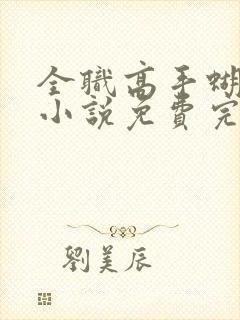 全職高手蝴
小說免費完
劉美辰